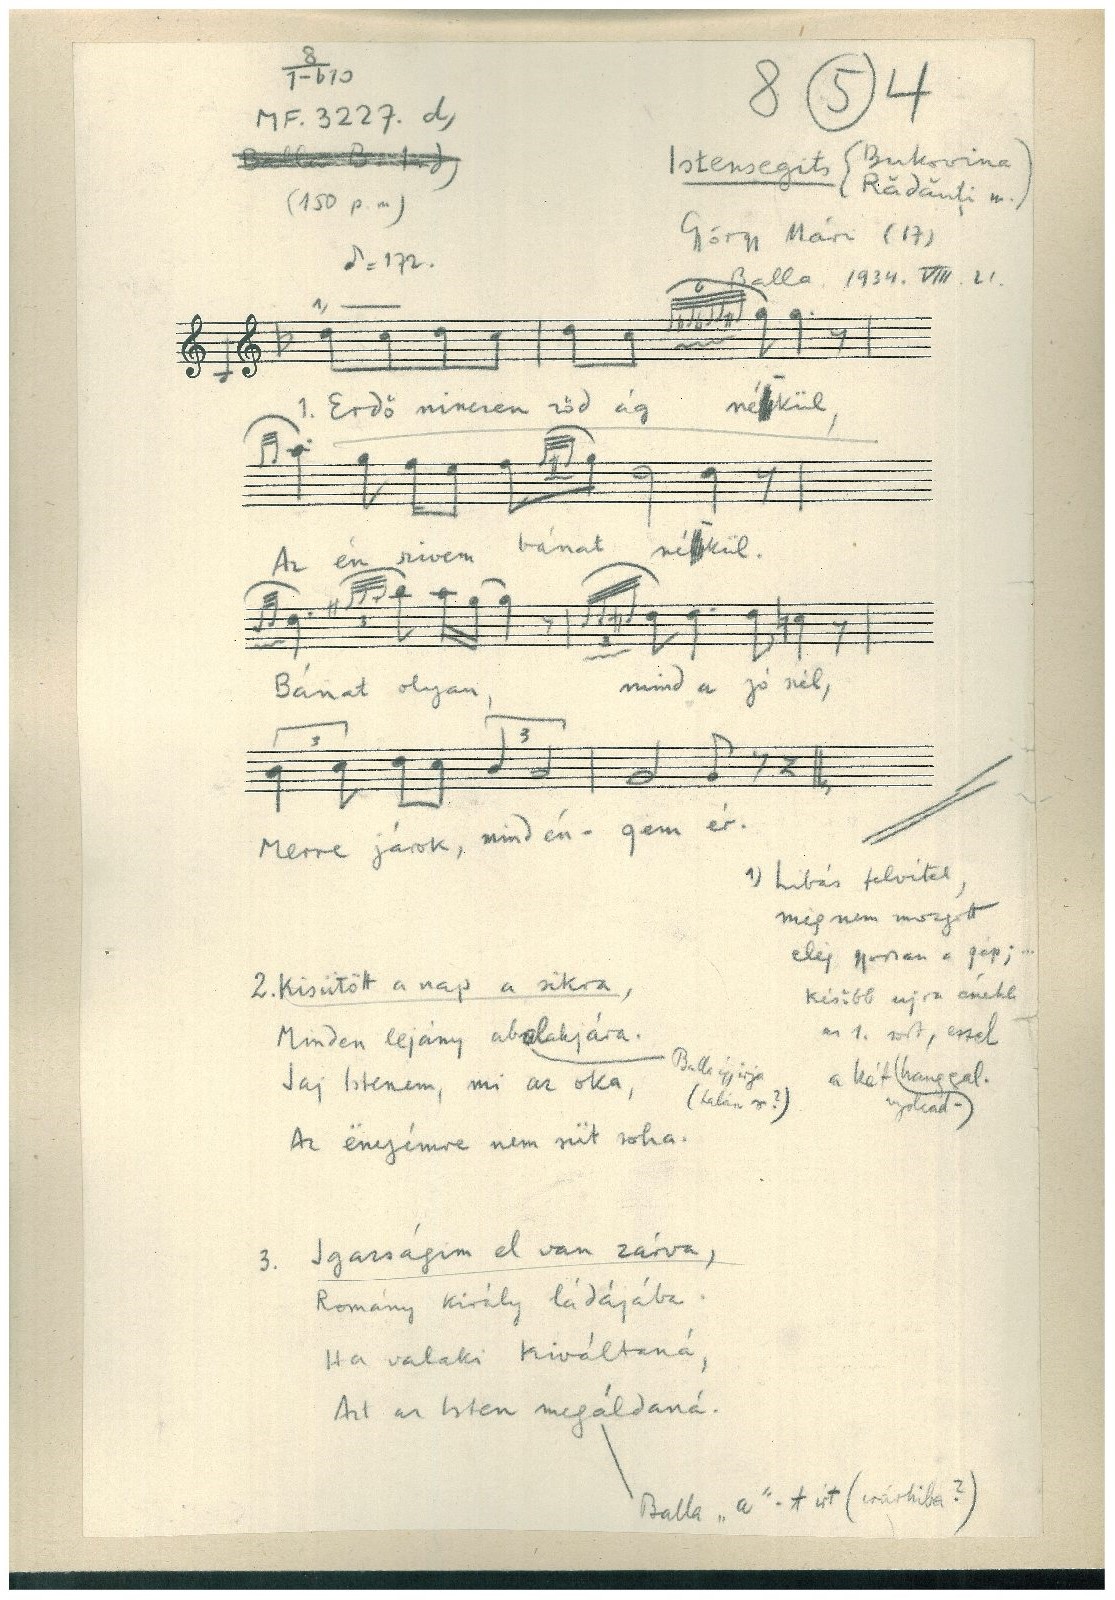 8
1-610
MF. 3227. d,
(150 p. m)
♪=172.
8 (5) 4
Istensegits (Bukovina
Rădăuţi m.)
György Mári (17)
Balla 1934. VIII. 21.
1)
6
1. Erdő nincsen zöd ág nékül,
Az én szivem bánat nékül.
3
3
Bánat olyan, mind a jó nél,
3
3
Merre járok, mind én-gem ér.
1) Hibás felvétel,
még nem mozgott
elég gyorsan a gép;
később ujra énekli
az 1. sort, ezzel
a két hanggal.
2. Kisütött a nap a síkra,
Minden lejány abalakjára.
Balla így írja
(talán o?)
Jaj Istenem, mi az oka,
Az ënyémre nem süt soha.
3. Igazságim el van zárva,
Romány király ládájába.
Ha valaki kiváltaná,
Azt az Isten megáldaná.
Balla „a"-t írt (íráshiba?)